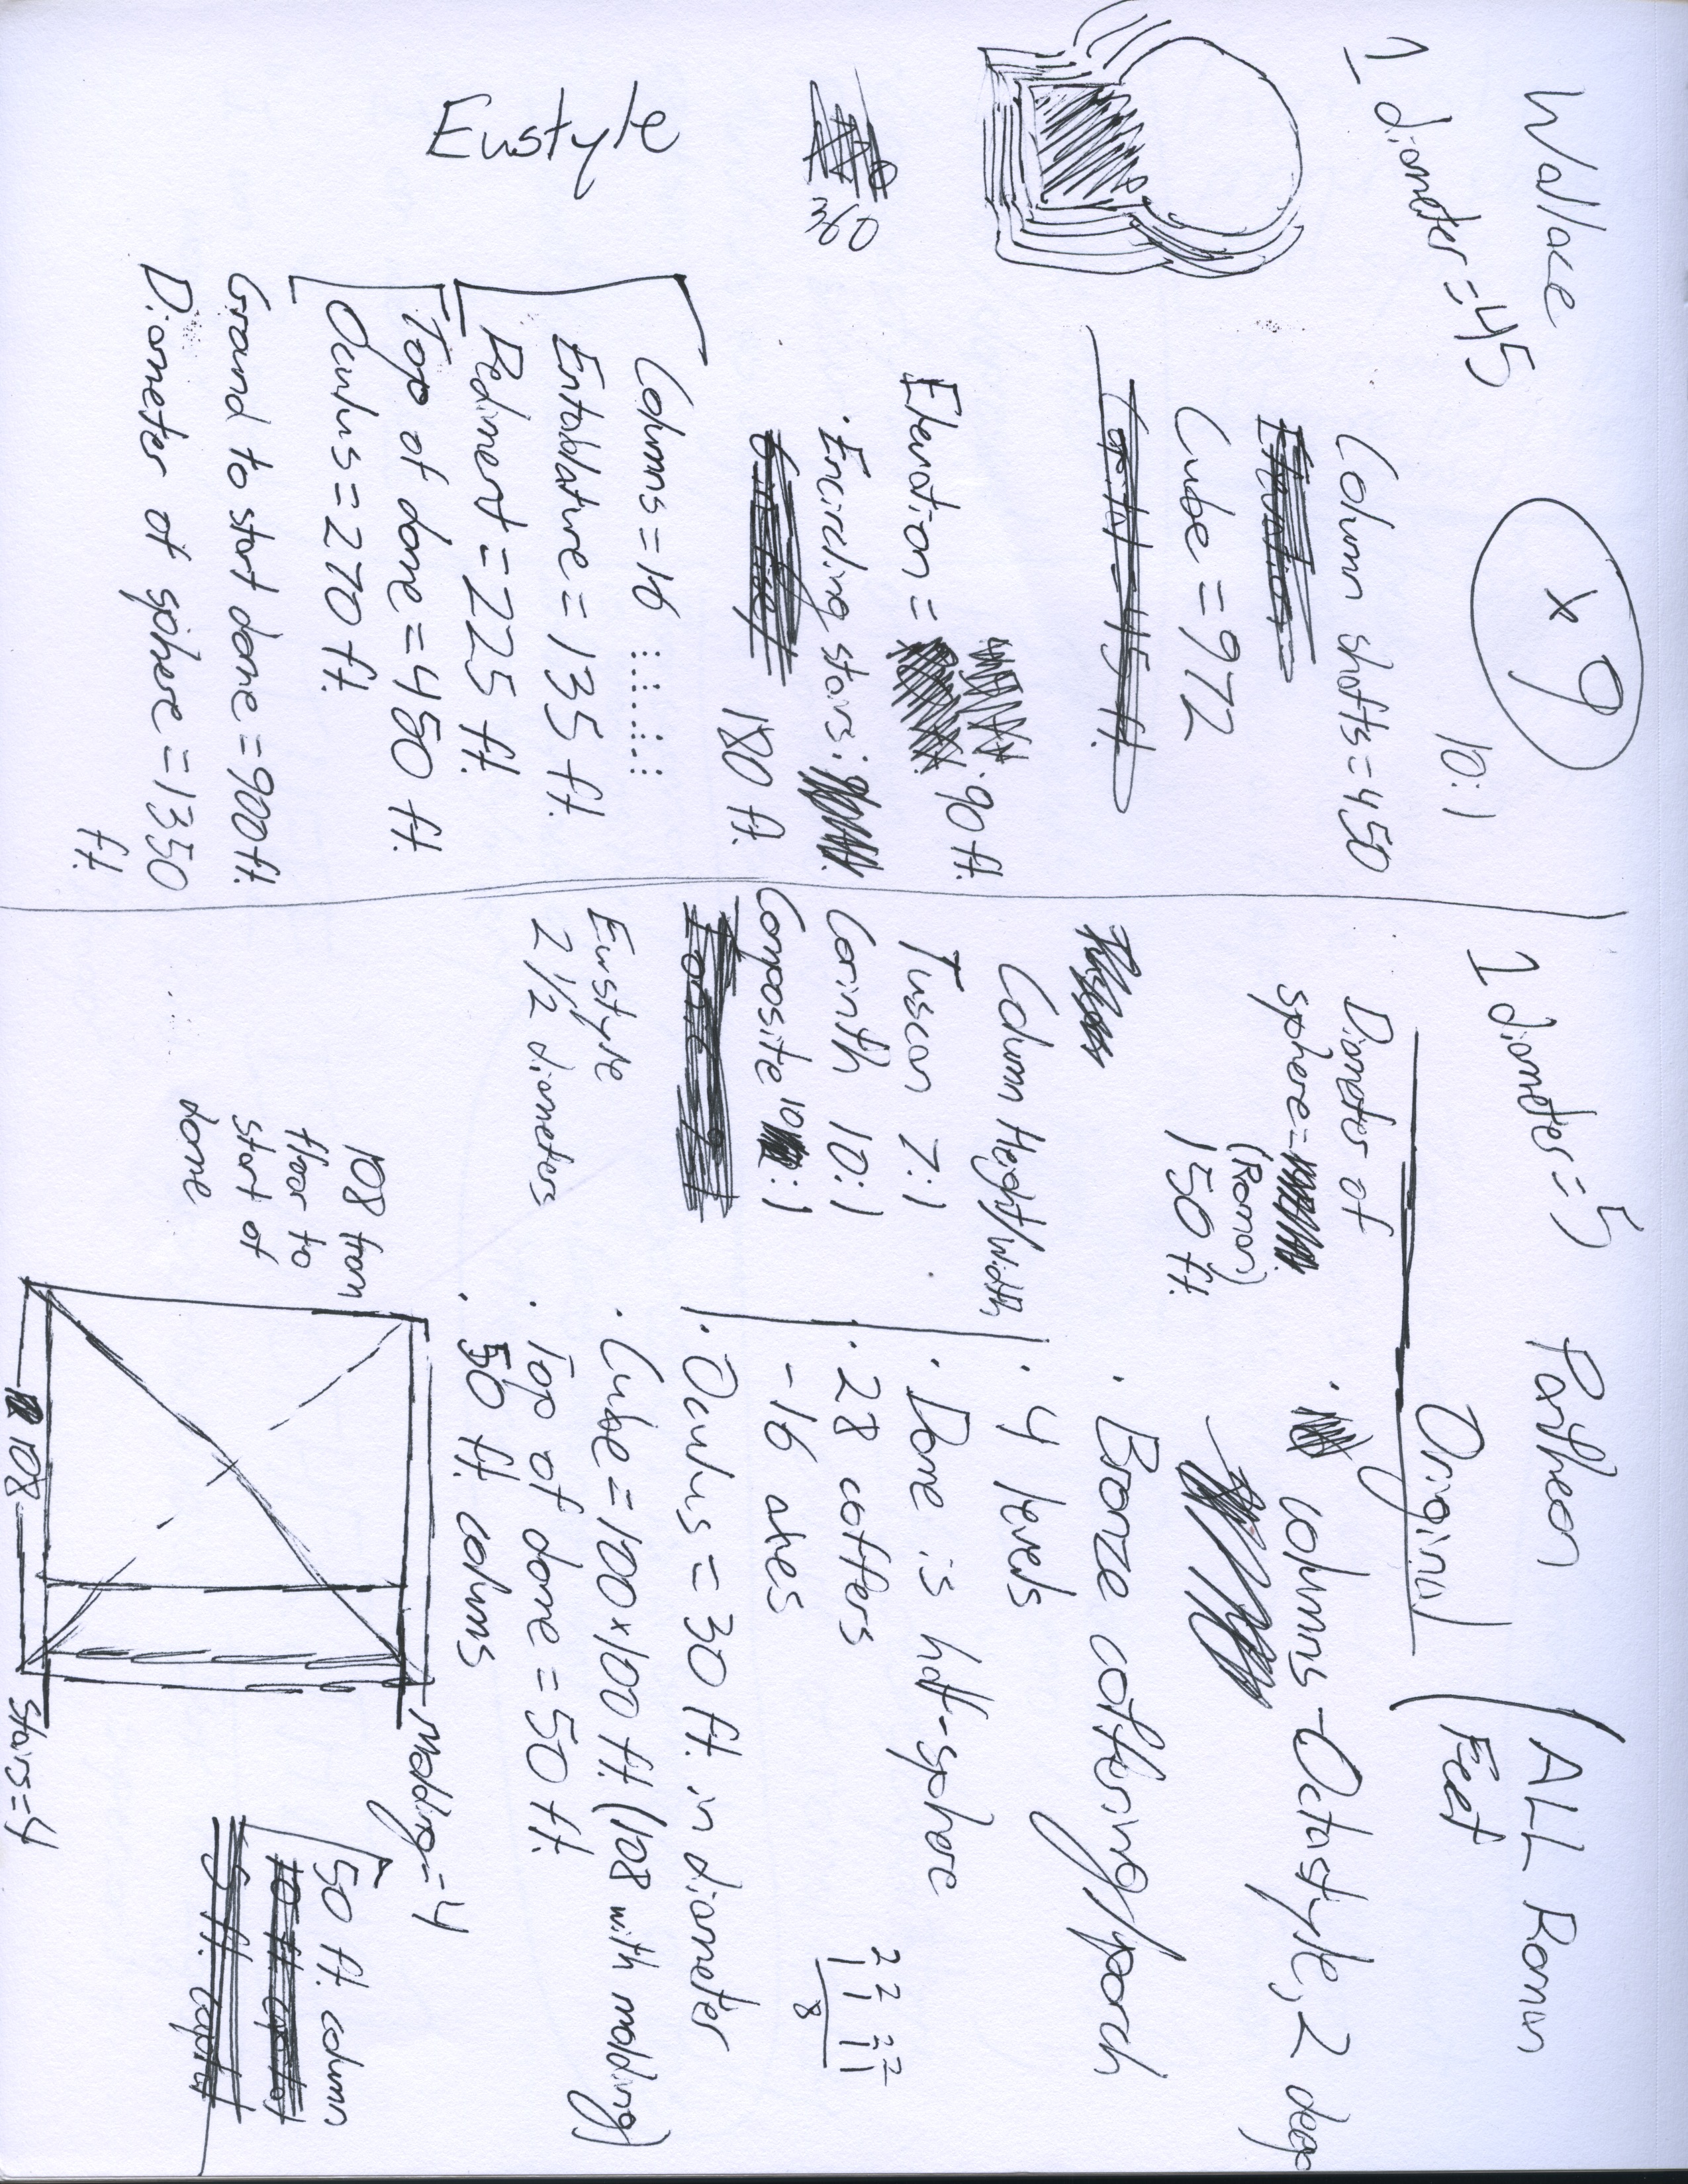 Wallace
1 diameter = 45
x 9
10:1
Column shafts = 450
Cube = 972
Elevation =
90 ft.
Encircling stairs:
180 ft.
360
Eustyle
Columns = 16
Entablature = 135 ft.
Pediment = 225 ft.
Top of dome = 450 ft.
Oculus = 270 ft.
Ground to start dome = 900 ft.
Diameter of sphere = 1350
ft.
Pantheon
(ALL Roman
Feet
1 diameter = 5
Original
Diameter of
sphere =
(Roman)
150 ft.
columns - Octastyle, 2 deep
Bronze coffering/porch
Column Height/Width
Tuscan 7:1
Corinth 10:1
Composite 10:1
Eustyle
2 1/2 diameters
· 4 levels
· Dome is half-sphere
· 28 coffers
- 16 axes
2 2 2 2
1 1 1 1
8
· Oculus = 30 ft. in diameter
· Cube = 100 x 100 ft. (108 with molding)
· Top of dome = 50 ft.
· 50 ft. columns
108 from
floor to
start of
dome
108
Molding = 4
Stairs = 4
50 ft. column
10 ft.
5 ft. capital